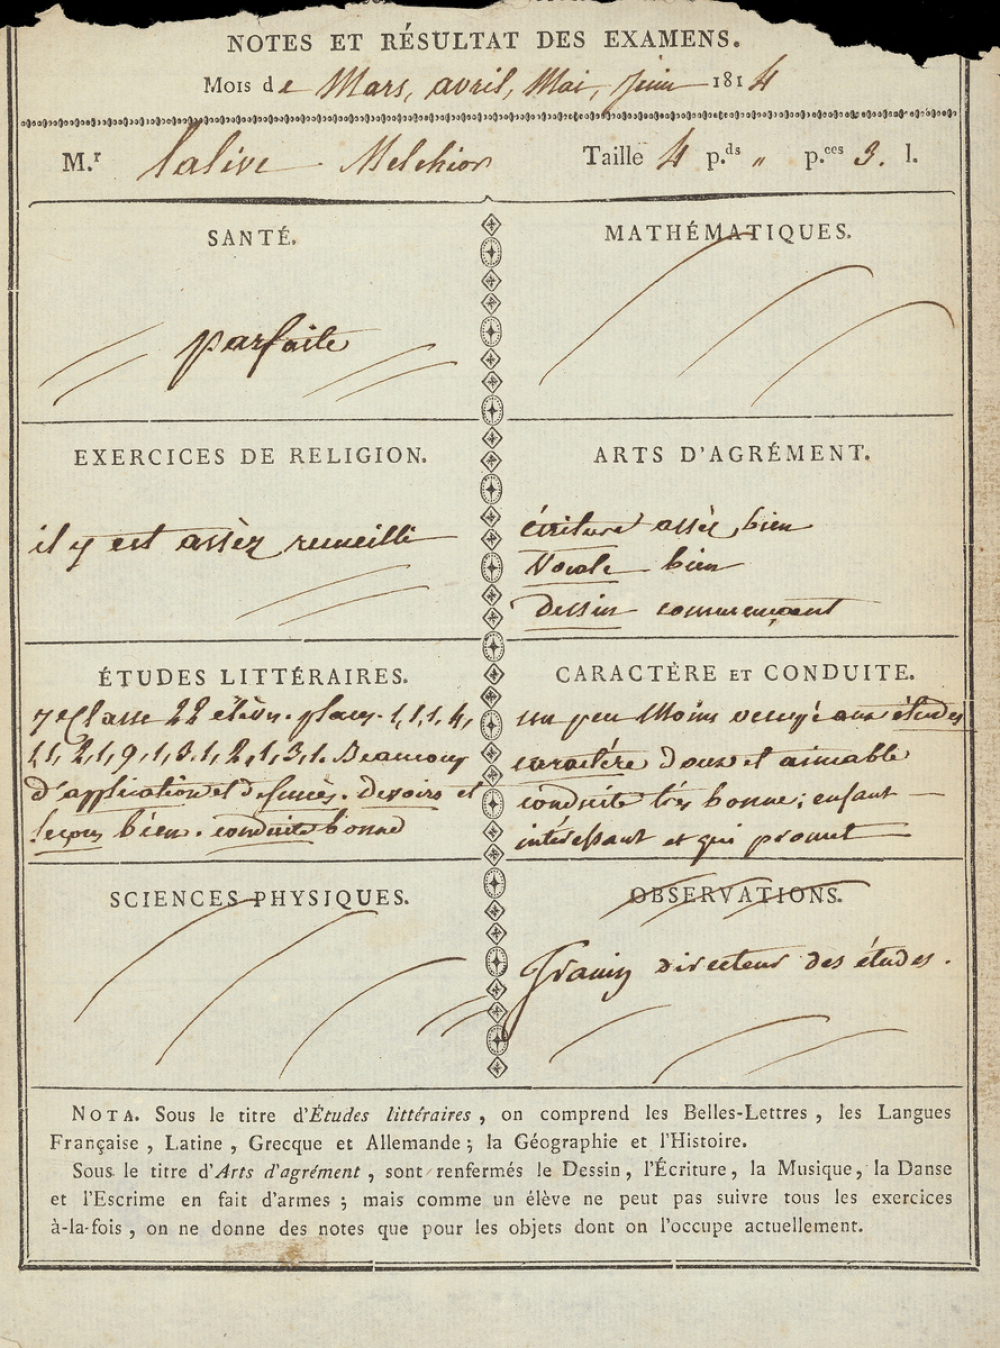 NOTES ET RÉSULTAT DES EXAMENS.
Mois de Mars, avril, Mai, Juin 1814
M.r Lalive Melchior Taille 4 p.ds " p.ces 3. l.
SANTÉ.
parfaite
MATHÉMATIQUES.
EXERCICES DE RELIGION.
il y est assèz recueilli
ARTS D'AGRÉMENT.
écriture assèz bien
Vocale bien
dessin commençant
ÉTUDES LITTÉRAIRES.
7e Classe 22 élèv. places. 1,1,1,4,
1,1,2,1,9,1,3.1,2,1,3,1. Beaucoup
d'application et de succès. devoirs et
leçons bien. conduite bonne
CARACTÈRE ET CONDUITE.
un peu Moins aux études
caractére doux et aimable
conduite très bonne; enfant
intéressant et qui promet
SCIENCES PHYSIQUES.
OBSERVATIONS.
directeur des études.
NOTA. Sous le titre d'Études littéraires, on comprend les Belles-Lettres, les Langues
Française, Latine, Grecque et Allemande; la Géographie et l'Histoire.
Sous le titre d'Arts d'agrément, sont renfermés le Dessin, l'Écriture, la Musique, la Danse
et l'Escrime en fait d'armes; mais comme un élève ne peut pas suivre tous les exercices
à-la-fois, on ne donne des notes que pour les objets dont on l'occupe actuellement.